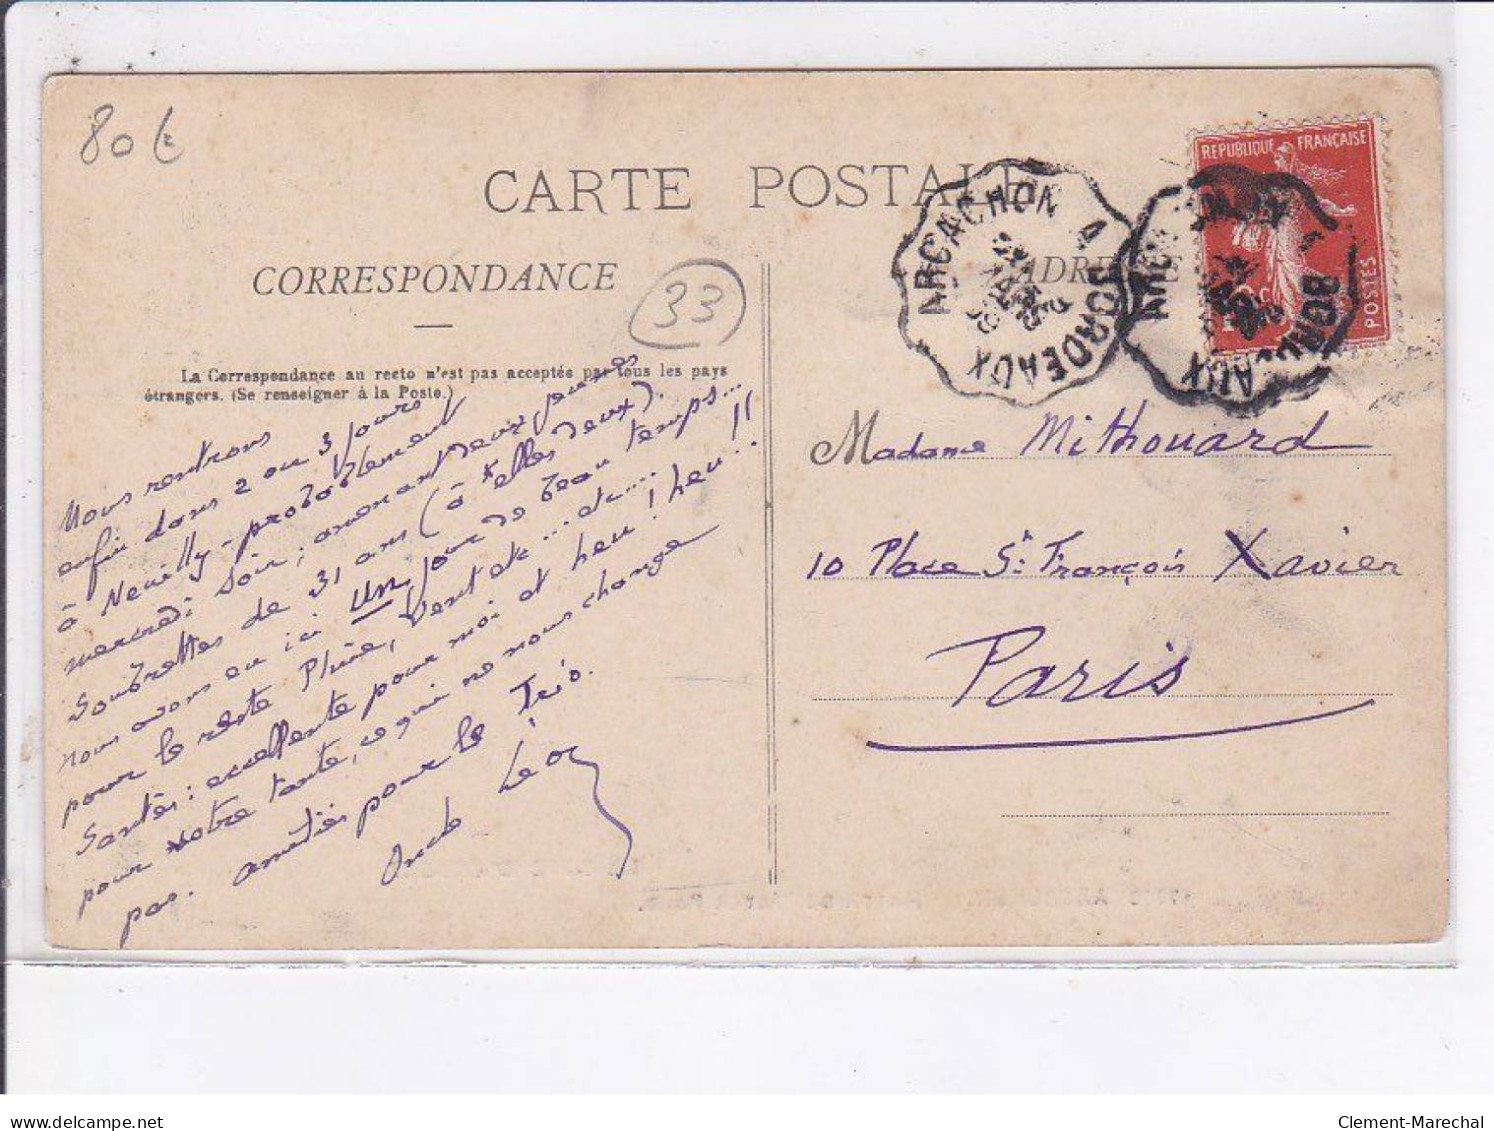 80 €
CARTE POSTALE
CORRESPONDANCE
33
ADRE
La Correspondance au recto n'est pas acceptée par tous les pays
étrangers. (Se renseigner à la Poste.)
ARCACHON A BORDEAUX
REPUBLIQUE FRANÇAISE
POSTES
Nous rentrons
enfin dans 2 ou 3 jours
à Neuilly - probablement
mercredi soir, amenant deux jeunes
soubrettes de 31 ans (à elles deux).
nous avons eu ici un jour de beau temps...
pour le reste Pluie, Vent etc... etc....
Santés : excellente pour moi et heu ! heu !!
pour votre tante, ce qui ne nous change
pas. amitiés pour le Trio.
Oncle Léon
Madame Mithouard
10 Place St François Xavier
Paris
delcampe.net
Clement-Marechal